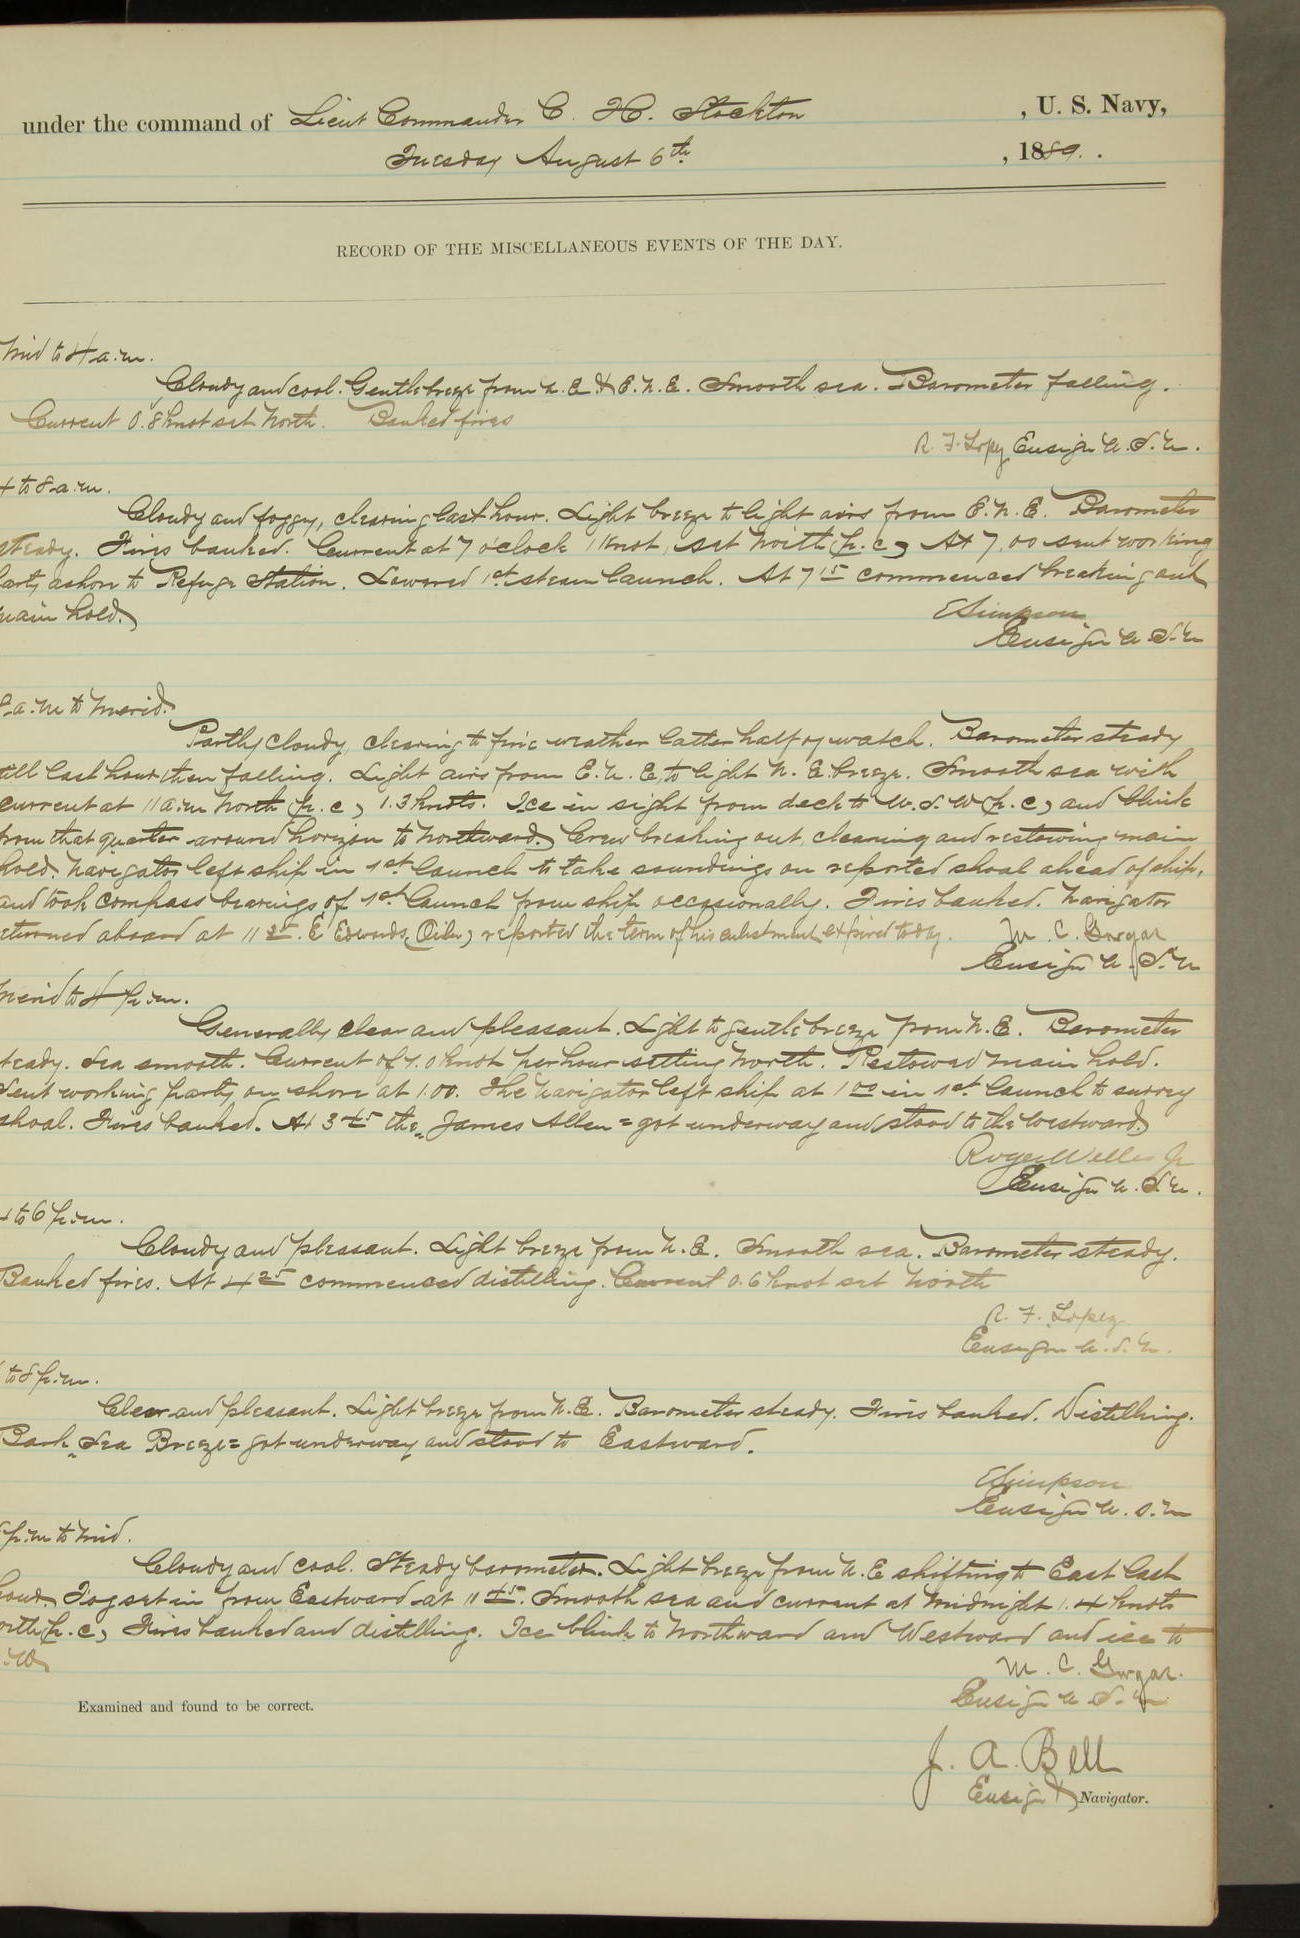 under the command of Lieut Commander C. H. Stockton, U. S. Navy,
Tuesday August 6th, 1889.
RECORD OF THE MISCELLANEOUS EVENTS OF THE DAY.
Mid to 4 a.m.
Cloudy and cool. Gentle breeze from N.E. & E.N.E. Smooth sea. Barometer falling.
Current 0.8 knot set North. Banked fires
R. F. Lopez Ensign U.S.N.
4 to 8 a.m.
Cloudy and foggy, clearing last hour. Light breeze to light airs from E.N.E. Barometer
steady. Fires banked. Current at 7 o'clock 1 knot, set North (p.c) At 7.00 sent working
party ashore to Refuge Station. Lowered 1st steam launch. At 7 15 commenced breaking out
main hold.
E Simpson
Ensign U.S.N
8 a.m to merid.
Partly cloudy, clearing to fine weather latter half of watch. Barometer steady
till last hour then falling. Light airs from E.N.E, to light N.E. breeze. Smooth sea with
current at 11 a.m North (p.c) 1.3 knots. Ice in sight from deck to W.S.W (p.c) and blink
from that quarter around horizon to Northward. Crew breaking out, cleaning and restowing main
hold. Navigator left ship in 1st launch to take soundings on reported shoal ahead of ship,
and took compass bearings of 1st launch from ship occasionally. Fires banked. Navigator
returned aboard at 11 25. E Edwards, (Oiler) reported the term of his enlistment expired to day.
M. C. Gorgas
Ensign U.S.N
Merid to 4 p.m.
Generally clear and pleasant. Light to gentle breeze from N.E. Barometer
steady. Sea smooth. Current of 1.0 knot per hour setting North. Restowed main hold.
Sent working party on shore at 1.00. The navigator left ship at 1 00 in 1st launch to survey
shoal. Fires banked. At 3 45 the "James Allen" got underway and stood to the westward.
Roger Welles Jr
Ensign U.S.N.
4 to 6 p.m.
Cloudy and pleasant. Light breeze from N.E. Smooth sea. Barometer steady.
Banked fires. At 4 25 commenced distilling. Current 0.6 knot set North
R. F. Lopez
Ensign U.S.N.
to 8 p.m.
Clear and pleasant. Light breeze from N.E. Barometer steady. Fires banked. Distilling.
Bark "Sea Breeze" got underway and stood to Eastward.
E Simpson
Ensign U.S.N
8 p.m to mid.
Cloudy and cool. Steady barometer. Light breeze from N.E shifting to East last
hour. Fog set in from Eastward at 11 45. Smooth sea and current at midnight 1.4 knots
North (p.c) Fires banked and distilling. Ice blink to Northward and Westward and ice to
.W.
M. C. Gorgas.
Ensign U.S.N
Examined and found to be correct.
J. A. Bell
Ensign & Navigator.